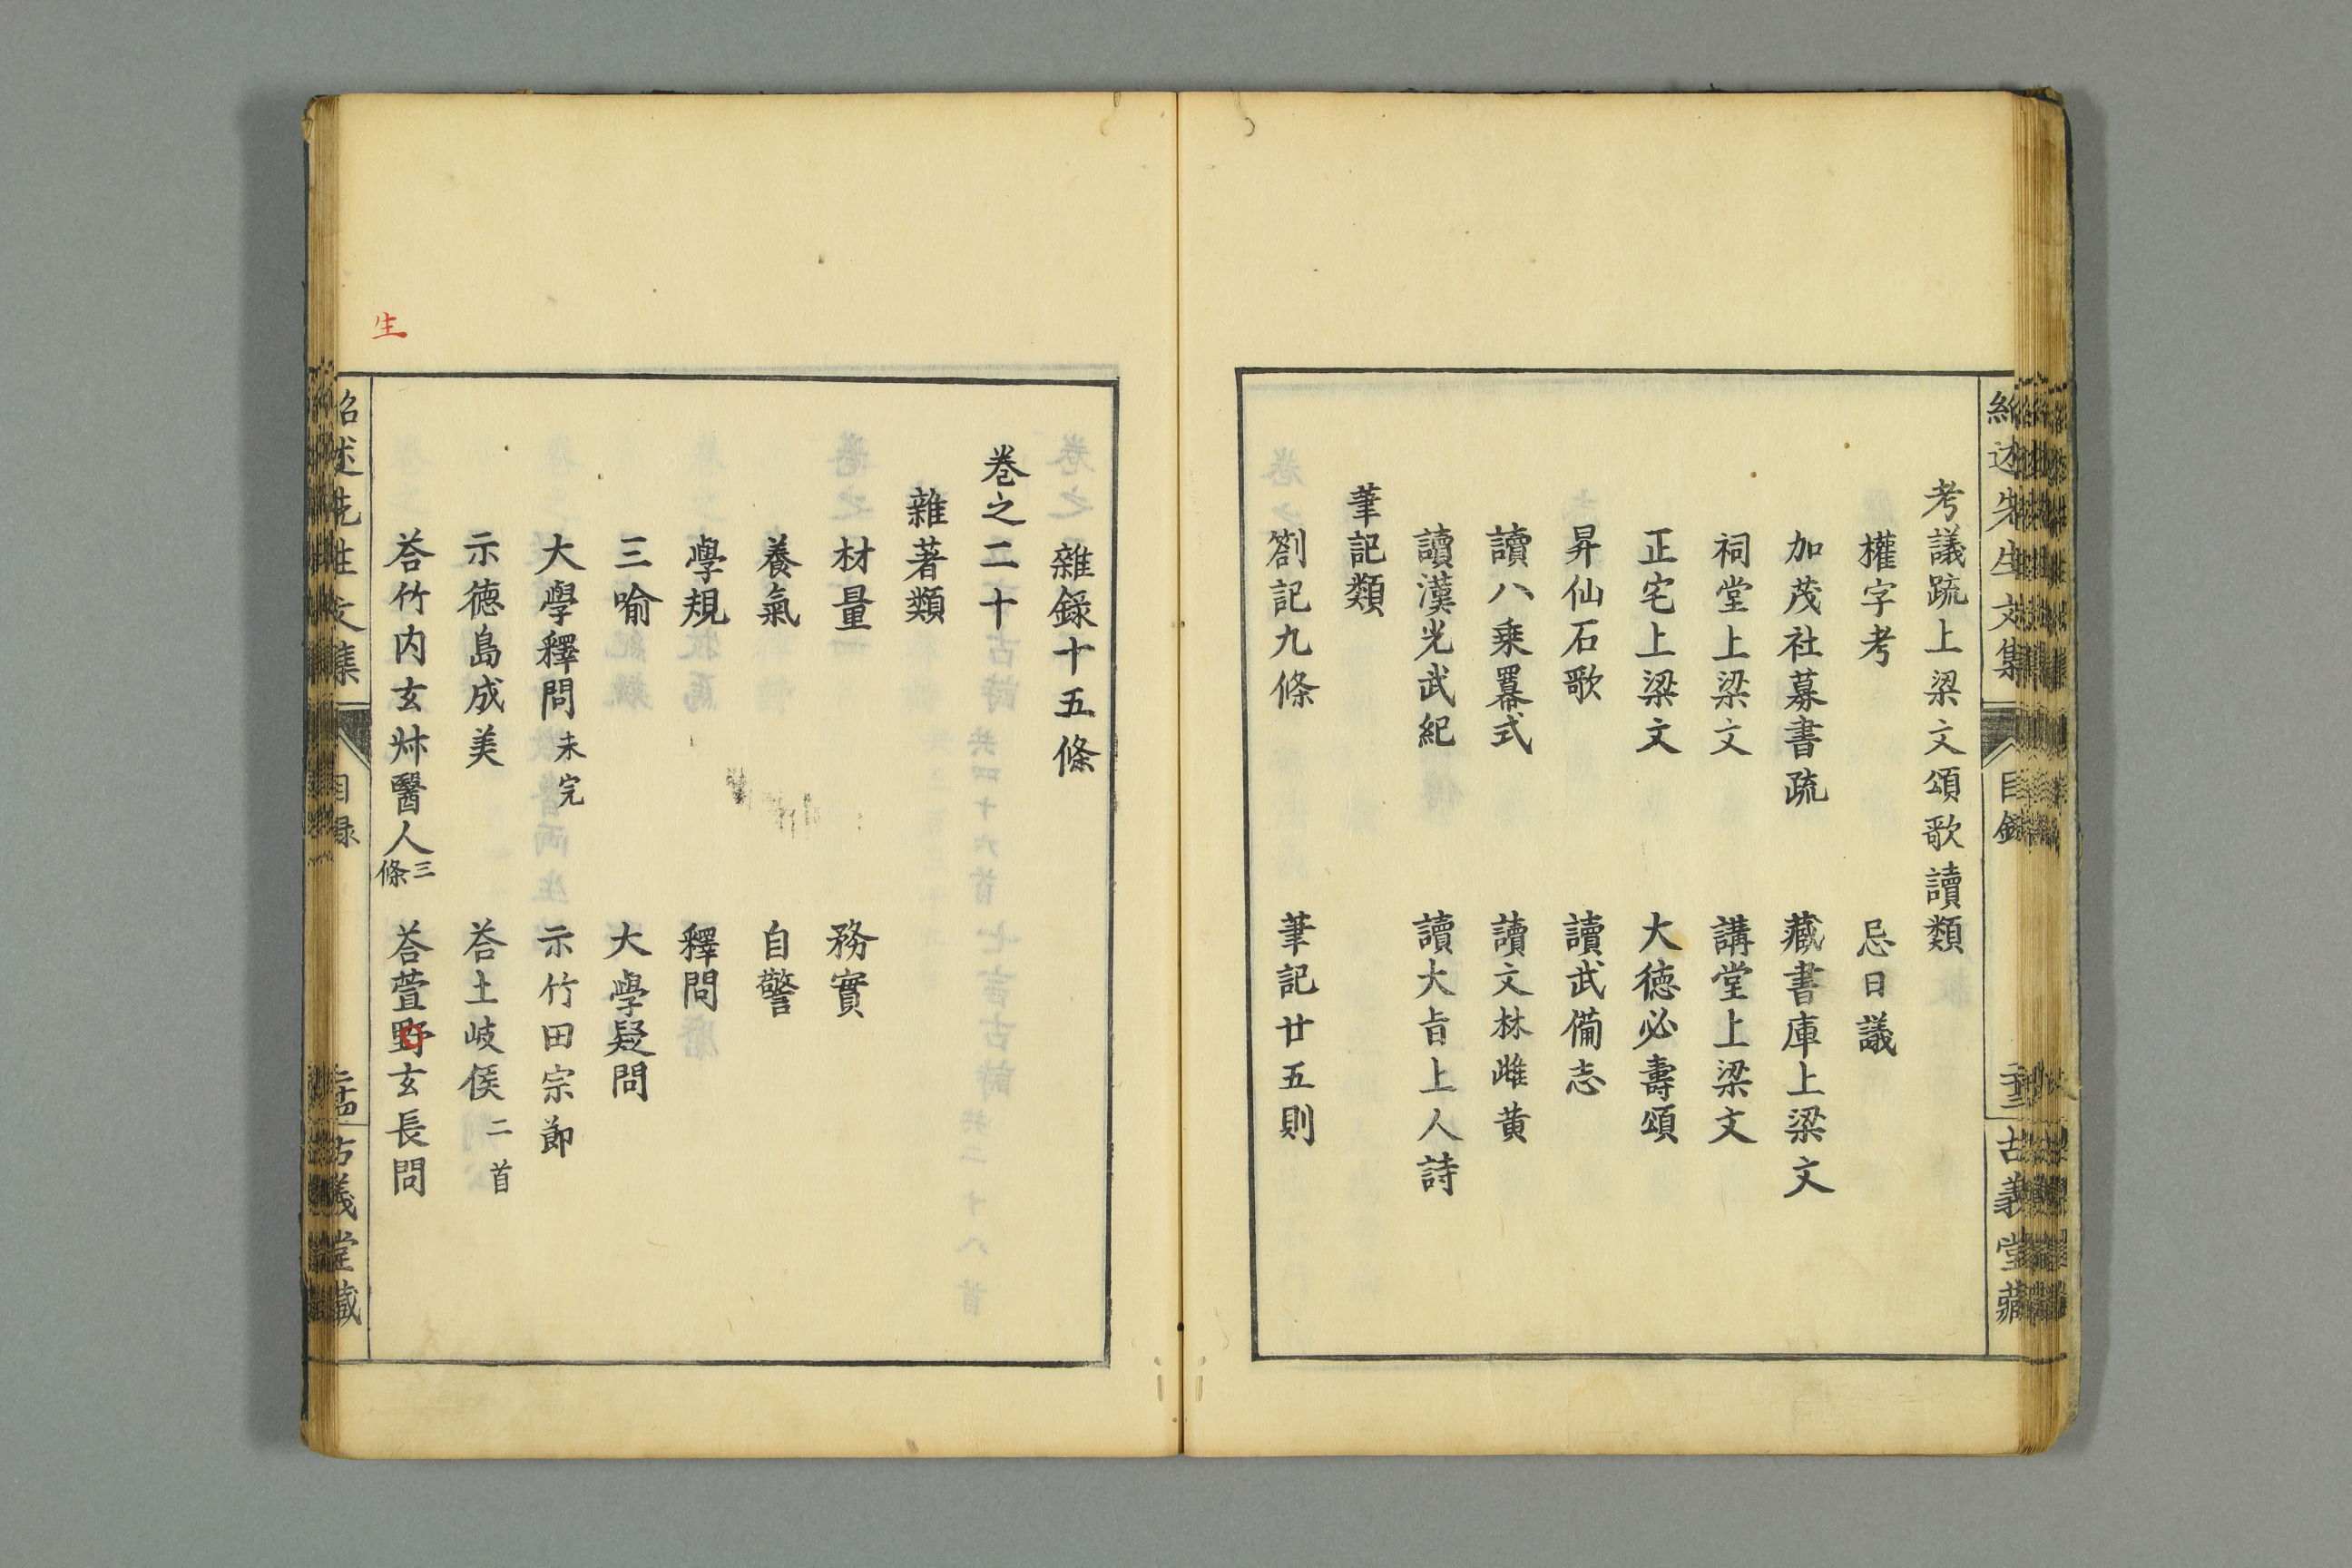 考議疏上梁文頌歌讀類
權字考　忌日議
加茂社募書疏　藏書庫上梁文
祠堂上梁文　講堂上梁文
正宅上梁文　大德必壽頌
昇仙石歌　讀武備志
讀八乘畧式　讀文林雌黄
讀漢光武紀　讀大旨上人詩
筆記類
劄記九條　筆記廿五則
雜録十五條
卷之二十
雜著類
材量　務實
養氣　自警
學規　釋問
三喻　大學疑問
大學釋問未完　示竹田宗節
示德島成美　荅土岐侯二首
荅竹内玄牀醫人三條　荅萱野玄長問
生
目録
古義堂藏